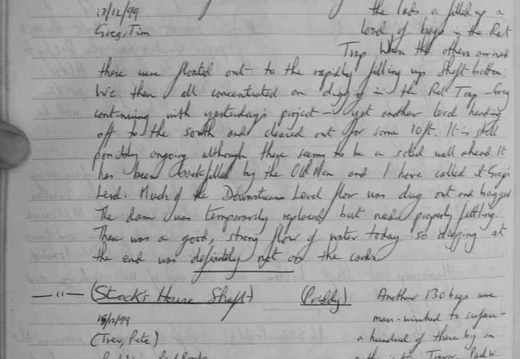 13/12/99
Greg, Tim
the lads a filled up a
load of bags in the Rat
Trap. When the others arrived
these were floated out to the rapidly filling up Shaft bottom.
We then all concentrated on digging in the Rat Trap - Greg
continuing with yesterday's project - yet another level heading
off to the south and cleared out for some 10ft. It is still
possibly ongoing although there seems to be a solid wall ahead. It
has been backfilled by the Old Men and I have called it Greg's
Level. Much of the Downstream Level floor was dug out and bagged
The dam was temporarily replaced but needs properly fettling.
There was a good, strong flow of water today so digging at
the end was definitely not on the cards.
— " — (Stock's House Shaft) (Priddy) Another 130 bags were
15/12/99 man-winched to surface -
(Trev, Pete) a hundred of these by
Trevor